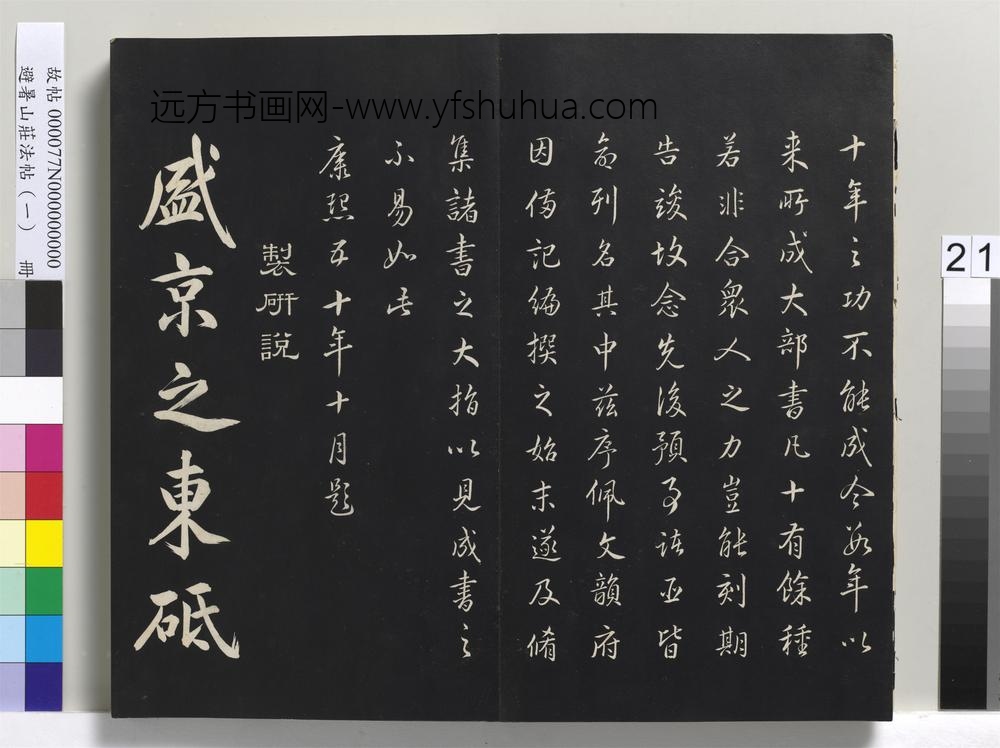 远方书画网-www.yfshuhua.com
十年之功不能成今數年以
来所成大部書凡十有餘種
若非合衆人之力豈能刻期
告竣故念先後預事諸臣皆
命列名其中兹序佩文韻府
因備記編撰之始末遂及脩
集諸書之大指以見成書之
不易如此
康熙五十年十月題
製研說
盛京之東砥
故帖 000077N000000000
避暑山莊法帖（一） 冊
21